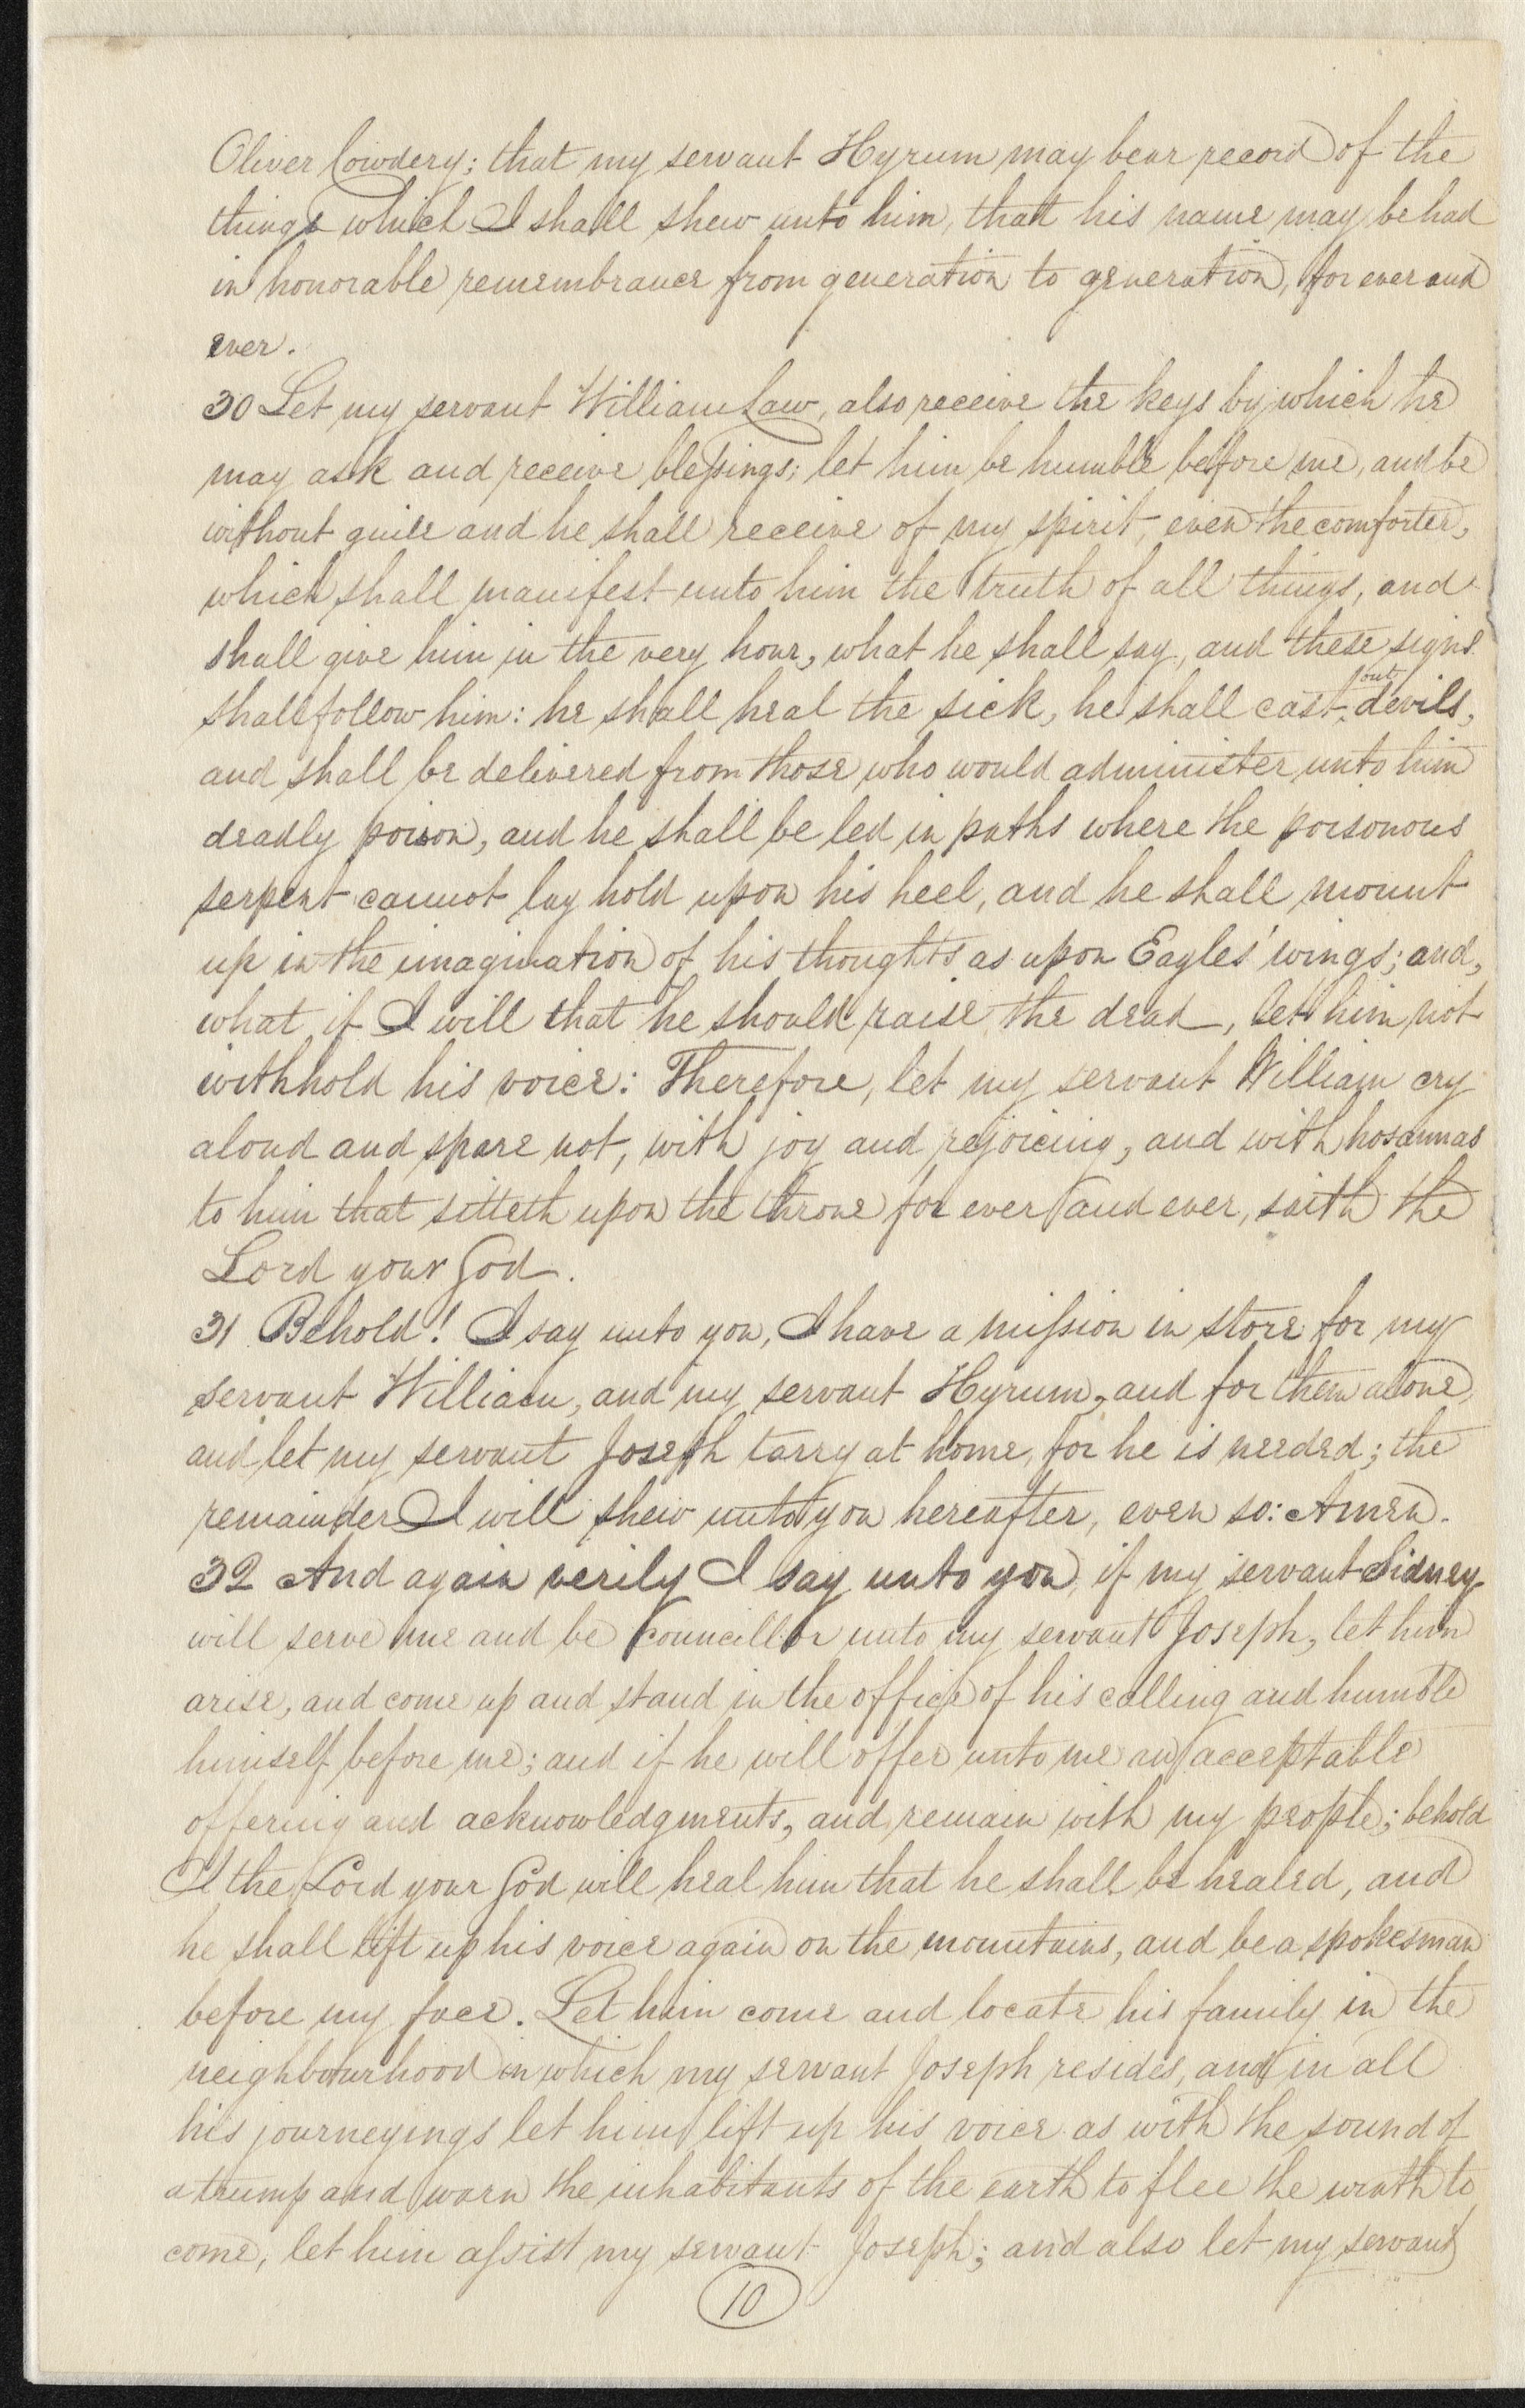 Oliver Cowdery; that my servant Hyrum may bear record of the
things which I shall shew unto him, that his name may be had
in honorable remembrance from generation to generation, for ever and
ever.
30 Let my servant William Law, also receive the keys by which he
may ask and receive blessings; let him be humble before me, and be
without guile and he shall receive of my spirit, even the comforter,
which shall manifest unto him the truth of all things, and
shall give him in the very hour, what he shall say, and these signs
shall follow him: he shall heal the sick, he shall cast out devils,
and shall be delivered from those who would administer unto him
deadly poison, and he shall be led in paths where the poisonous
serpent cannot lay hold upon his heel, and he shall mount
up in the imagination of his thoughts as upon Eagles' wings; and,
what if I will that he should raise the dead, let him not
withhold his voice: Therefore, let my servant William cry
aloud and spare not, with joy and rejoicing, and with hosannas
to him that sitteth upon the throne for ever and ever, saith the
Lord your God.
31 Behold! I say unto you, I have a mission in store for my
servant William, and my servant Hyrum, and for them alone,
and let my servant Joseph tarry at home, for he is needed; the
remainder I will shew unto you hereafter, even so: Amen.
32 And again verily I say unto you, if my servant Sidney
will serve me and be councillor unto my servant Joseph, let him
arise, and come up and stand in the office of his calling and humble
himself before me; and if he will offer unto me an acceptable
offering and acknowledgments, and remain with my people; behold
I the Lord your God will heal him that he shall be healed, and
he shall lift up his voice again on the mountains, and be a spokesman
before my face. Let him come and locate his family in the
neighbourhood in which my servant Joseph resides, and in all
his journeyings let him lift up his voice as with the sound of
a trump and warn the inhabitants of the earth to flee the wrath to
come, let him assist my servant Joseph; and also let my servant
10